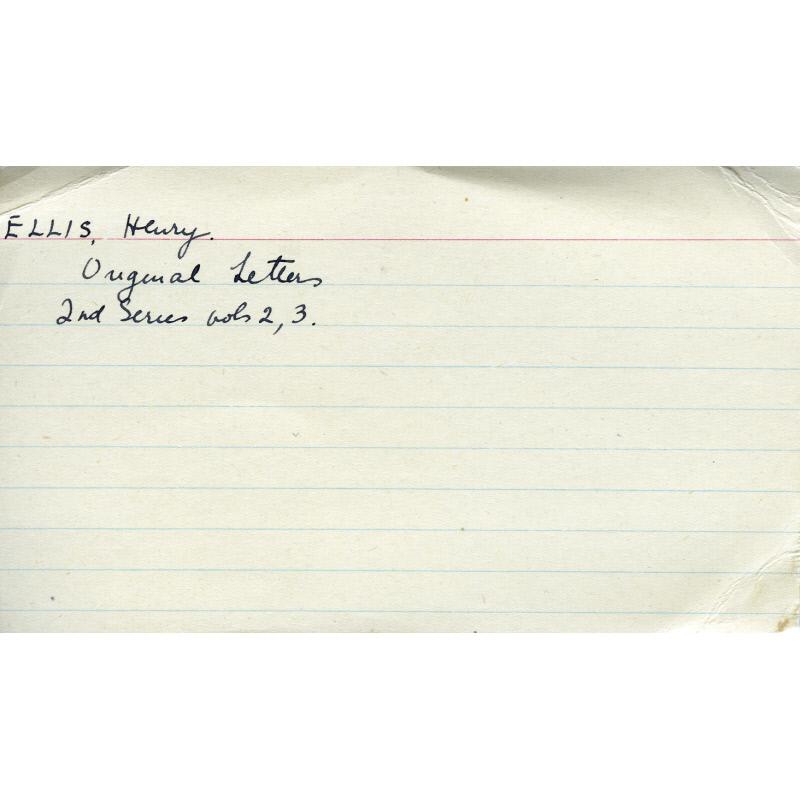 ELLIS, Henry.
Original Letters
2nd Series vols 2, 3.